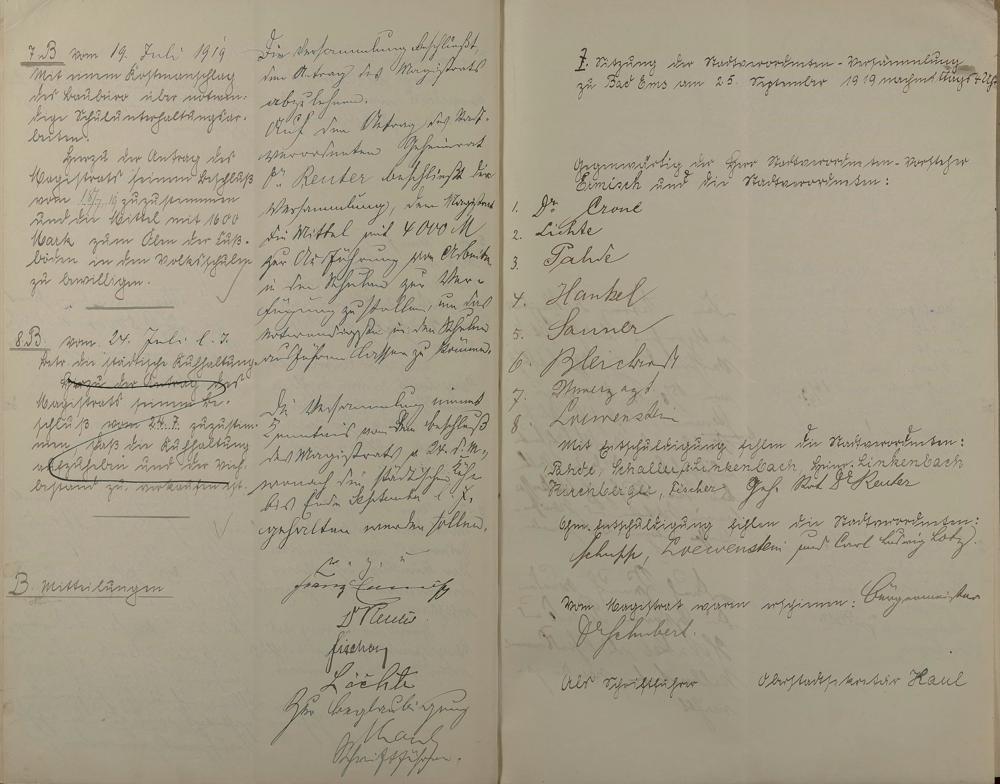 7 B vom 19. Juli 1919
Mit einem Kostenanschlag
des Baubüro über notwen-
dige Schulunterhaltungsar-
beiten.
Hierzu der Antrag des
Magistrats seinem Beschluß
vom 18/7.19 zuzustimmen
und die Mittel mit 1600
Mark zum Ölen der Fuß-
böden in den Volksschulen
zu bewilligen.
8.B. vom 24. Juli l. J.
betr. die städtische Kuhhaltung.
Hierzu der Antrag des
Magistrats seinem Be-
schluß vom 24.7. zuzustim-
men, daß die Kuhhaltung
aufzuheben und der Vieh-
bestand zu verkaufen ist.
B. Mitteilungen
Die Versammlung beschließt,
den Antrag des Magistrats
abzulehnen.
Auf den Antrag des Stadt-
verordneten Geheimrat
Dr. Reuter beschließt die
Versammlung, dem Magistrat
die Mittel mit 4000 M
zur Ausführung von Arbeiten
in den Schulen zur Ver-
fügung zu stellen, um das
Notwendigste in den Schulen
ausführen lassen zu können.
Die Versammlung nimmt
Kenntnis von dem Beschluß
des Magistrats v. 24. d. M.,
wonach die städtischen Kühe
bis Ende September l. J.
gehalten werden sollen.
v. g. u.
Franz Ermisch
Dr Reuter
Fischer
Lichte
Zur Beglaubigung
Haul
Schriftführer.
7. Sitzung der Stadtverordneten-Versammlung
zu Bad Ems am 25. September 1919 nachmittags 4 Uhr.
Gegenwärtig der Herr Stadtverordneten-Vorsteher
Ermisch und die Stadtverordneten:
1. Dr. Crone
2. Lichte
3. Pahde
4. Hankel
5. Sauner
6.
7.
8. Loewenstein
Mit Entschuldigung fehlen die Stadtverordneten:
Pahde, Schaller, Linkenbach, Heinr. Linkenbach
Kirchberger, Fischer Geh. Rat Dr Reuter
Ohne Entschuldigung fehlen die Stadtverordneten:
Schupp, Loewenstein und Carl Ludwig Lotz.
Vom Magistrat waren erschienen: Bürgermeister
Dr Schubert.
Als Schriftführer Oberstadtsekretär Haul